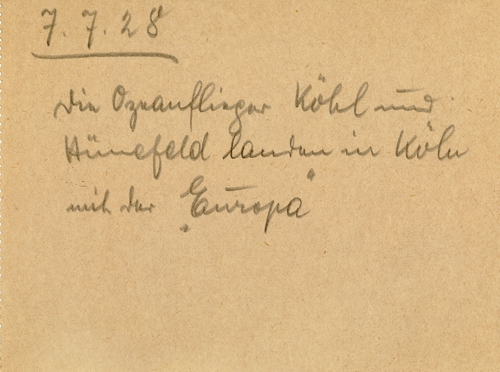 7.7.28
Die Ozeanflieger Köhl und
Hünefeld landen in Köln
mit der „Europa"